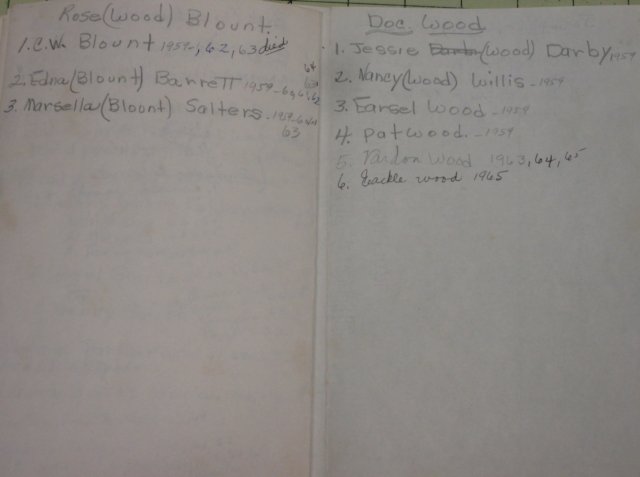 Rose (Wood) Blount
1. C.W. Blount 1959-, 62, 63 died
2. Edna (Blount) Barrett 1959-60, 61, 62
63
64
3. Marsella (Blount) Salters. 1959-60, 61
63
Doc. Wood
1. Jessie Darby (Wood) Darby 1959
2. Nancy (Wood) Willis - 1959
3. Earsel Wood - 1959
4. Pat Wood. - 1959
5. Vardon Wood 1963, 64, 65
6. wood 1965